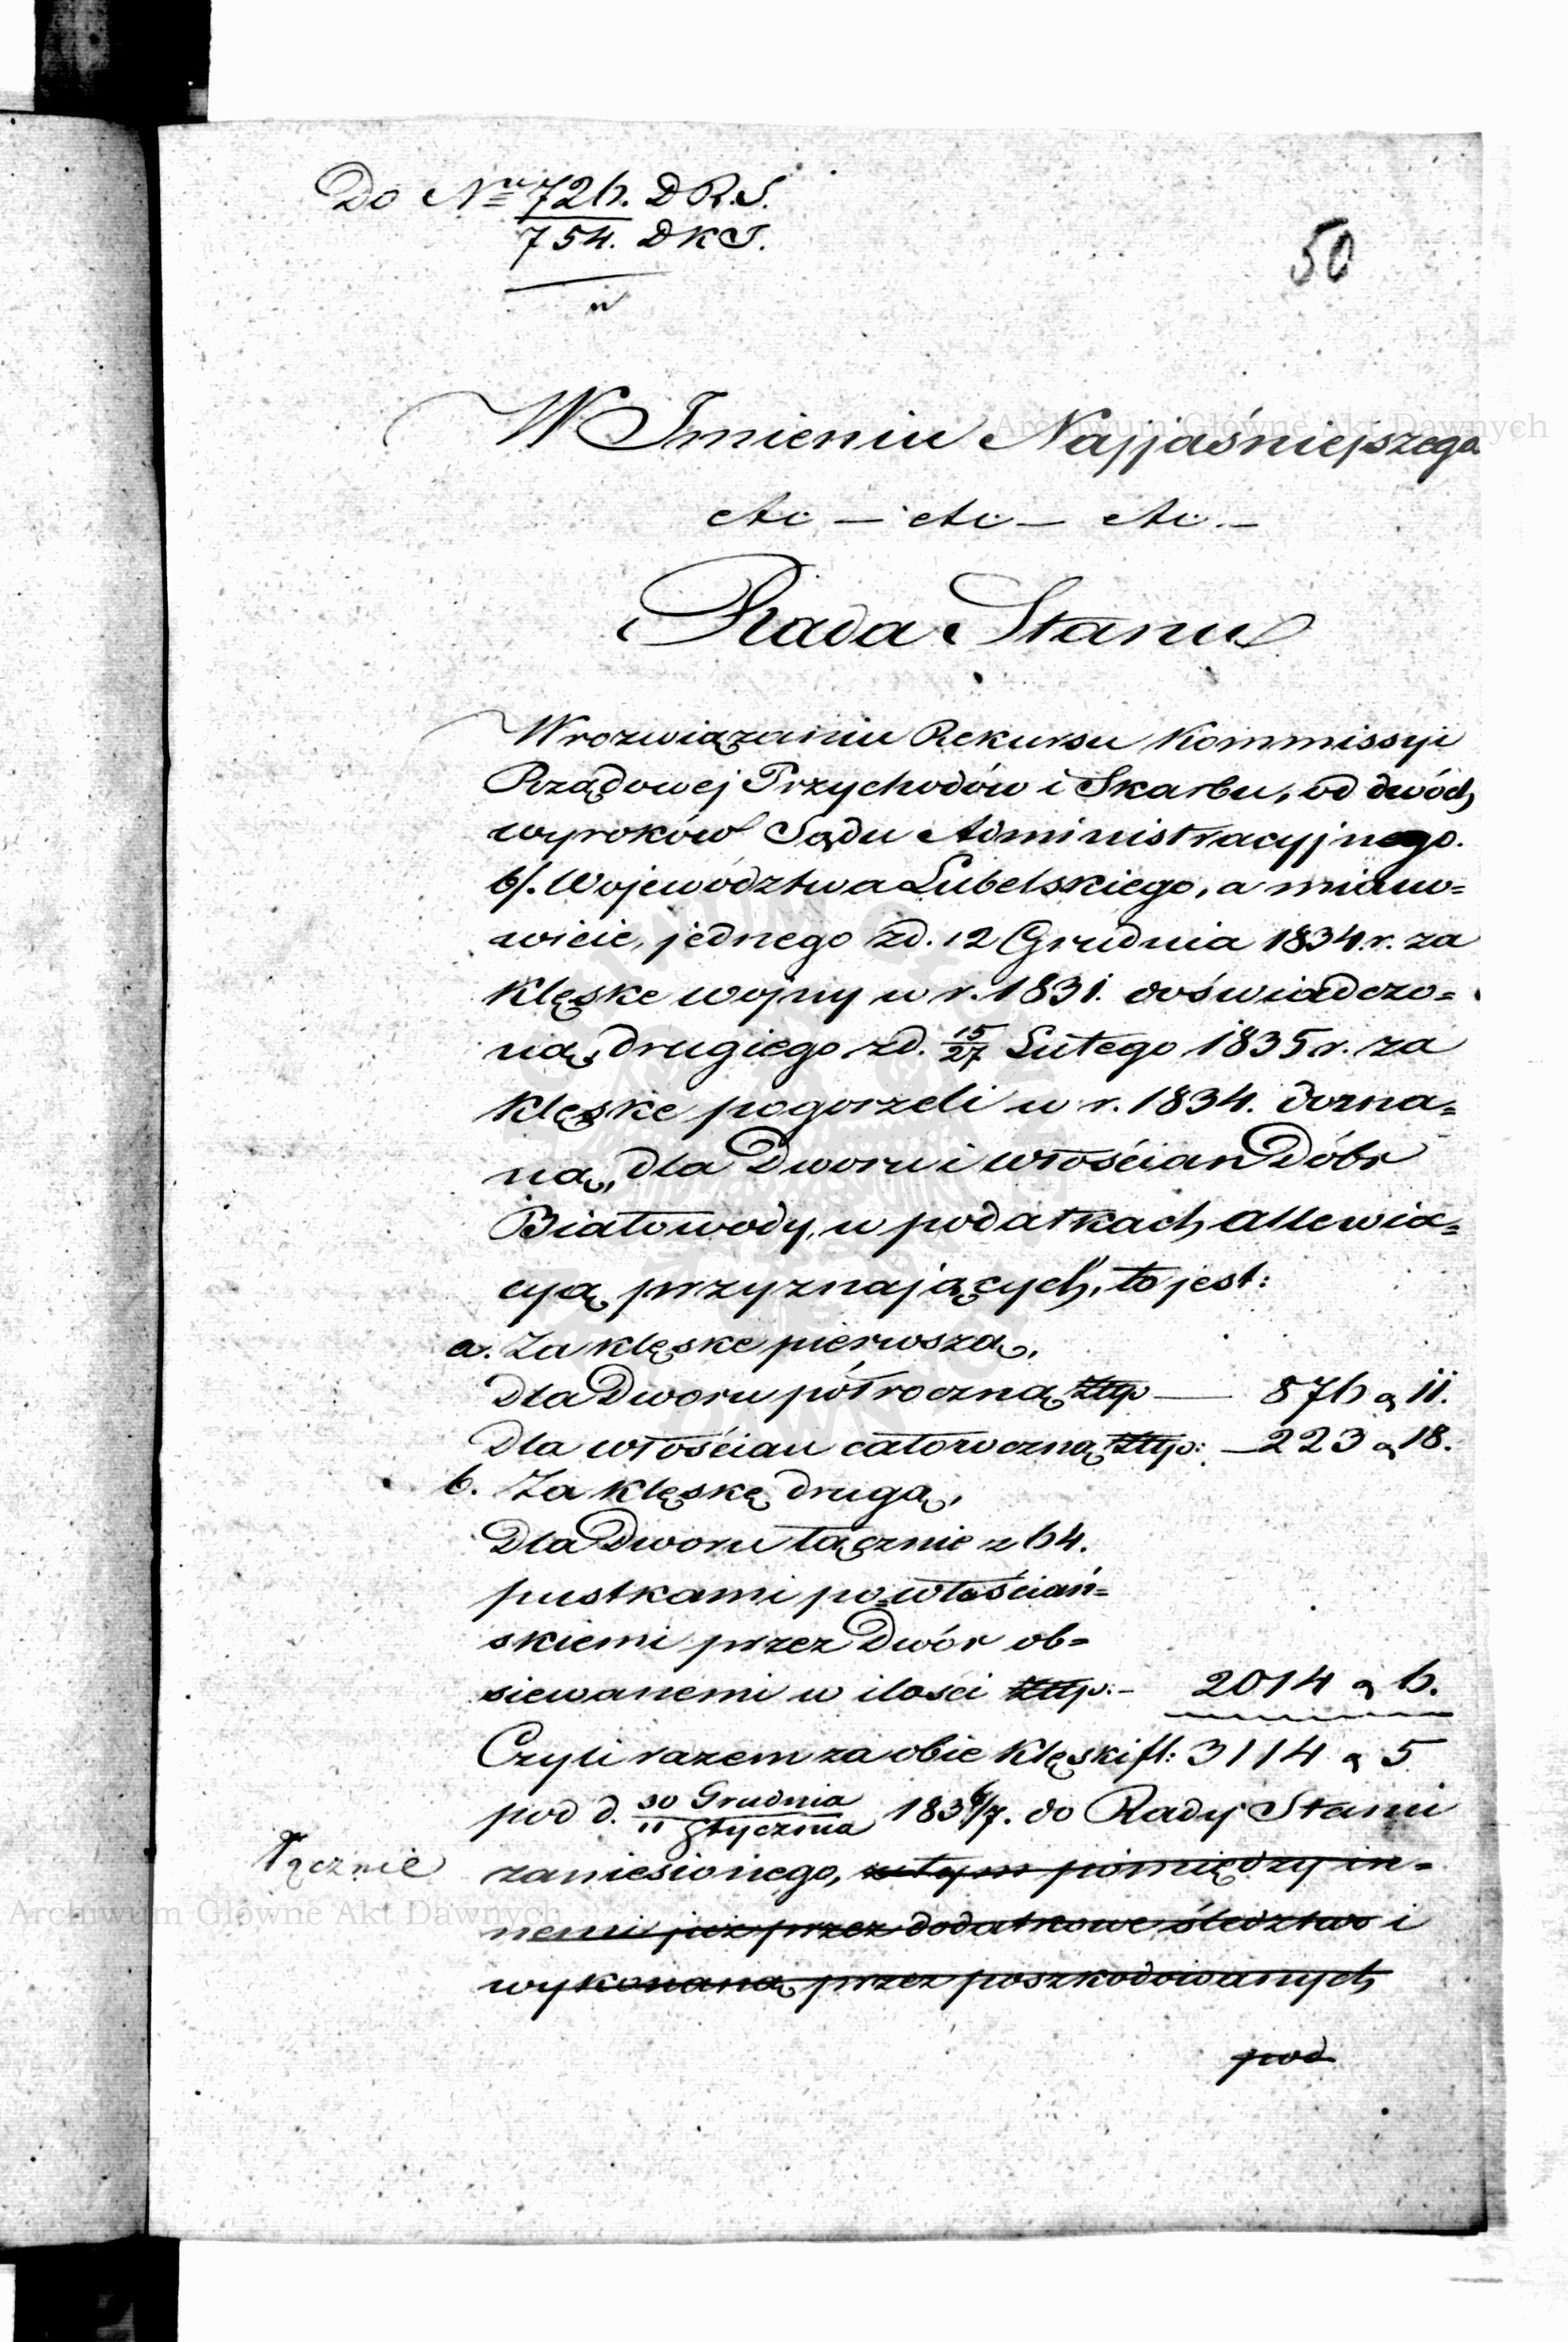 Do Nru 726. D R.S.
754. D K J.
50
W Imieniu Najjaśniejszego
etc — etc — etc. —
Rada Stanu
W rozwiązaniu Rekursu Kommissyi
Rządowej Przychodów i Skarbu, od dwóch
wyroków Sądu Administracyjnego.
b/. Województwa Lubelskiego, a miano=
wicie, jednego z d. 12 Grudnia 1834. r. za
klęske wojny w r. 1831. doświadczo=
ną, drugiego z d. 15/27 Lutego 1835 r. za
klęske pogorzeli w r. 1834. dozna=
ną, dla Dworu i włościan Dóbr
Białowody, w podatkach allewia=
cyą przyznających, to jest:
a. Za klęske pierwszą,
dla Dworu półroczną Złtp — 876 „ 11.
dla włościan całoroczną Złtp: — 223 „ 18.
b. Za klęskę drugą,
dla Dworu łącznie z 64.
pustkami po=włościań=
skiemi przez Dwór ob=
siewanemi w ilości Złtp: — 2014 „ 6.
Czyli razem za obie klęski fl: 3114 „ 5
pod d. 30 Grudnia / 11 Stycznia 1836/7. do Rady Stanu
Łącznie
zaniesionego, w tym pomiędzy in=
nemi już przez dodatkowe śledztwo i
wykonaną przez poszkodowanych
pod
Archiwum Główne Akt Dawnych
Archiwum Główne Akt Dawnych